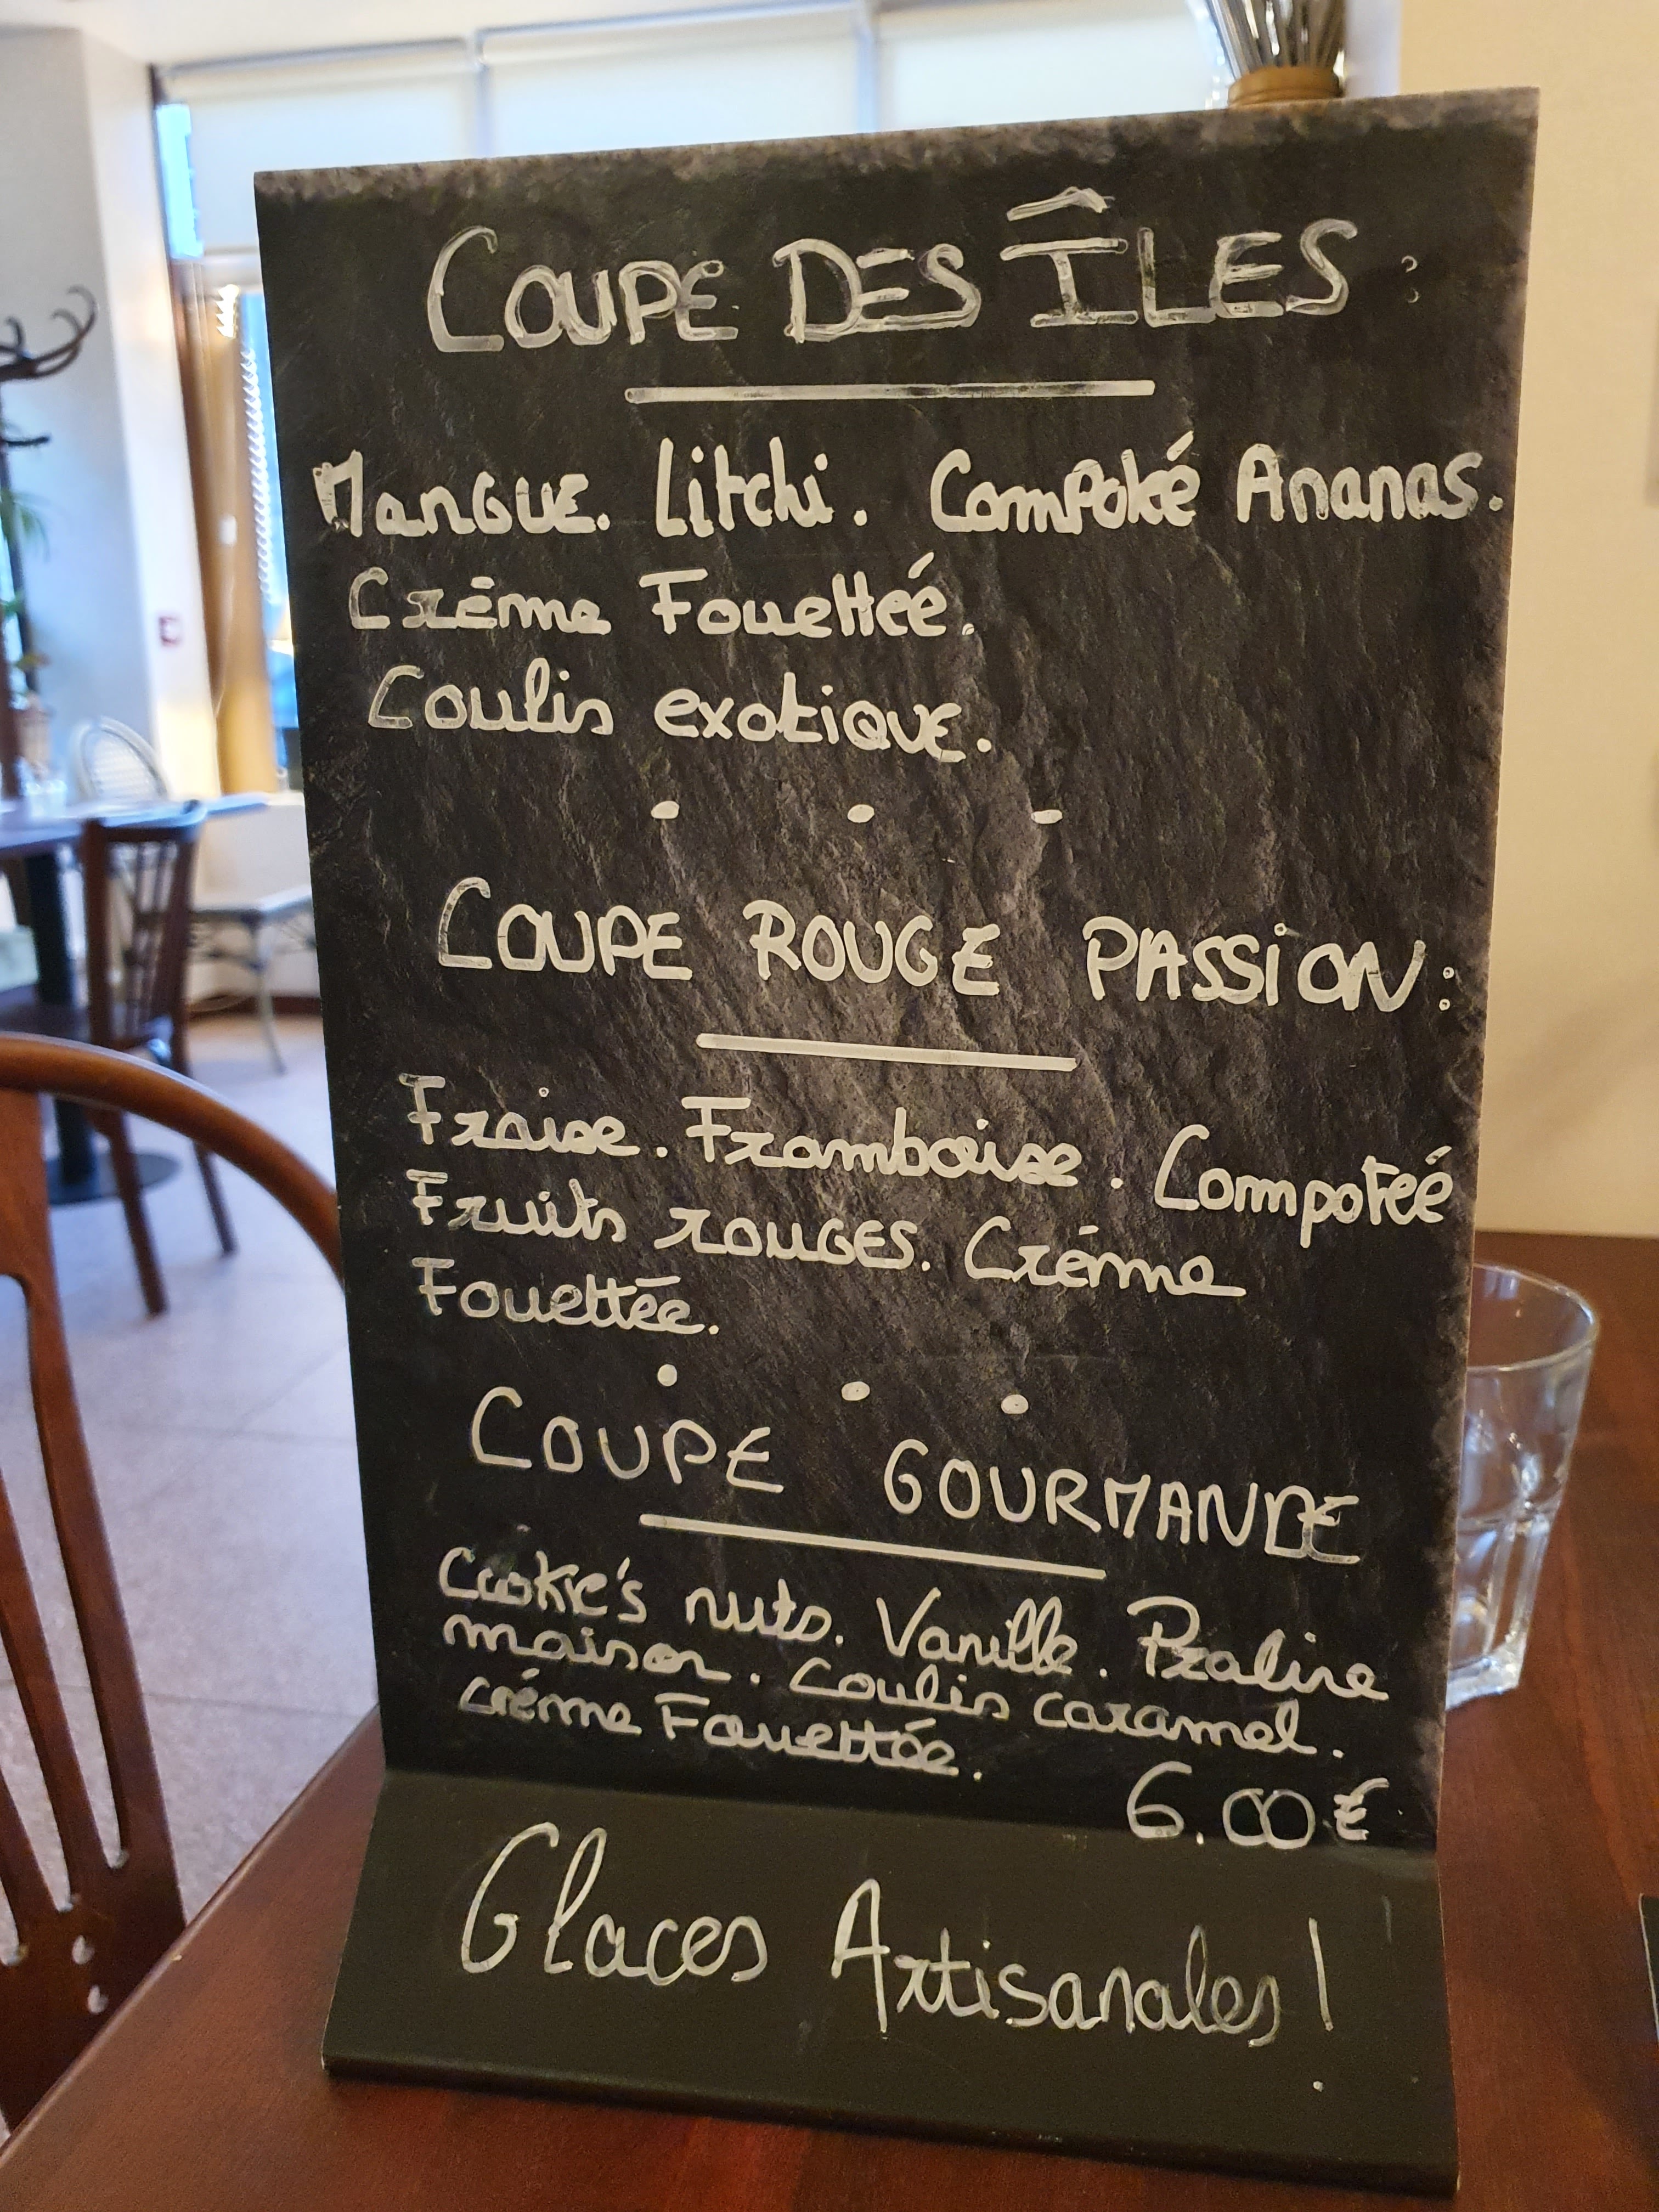 COUPE DES ÎLES :
MANGUE. Litchi. Compoté Ananas.
Crême Fouetteé.
Coulis exotique.
. . .
COUPE ROUGE PASSION:
Fraise. Framboise. Compoteé
Fruits rouges. Créme
Fouettée.
. . .
COUPE GOURMANDE
Cookie's nuts. Vanille. Praline
maison. Coulis caramel.
créme Fouettée.
6.00€
Glaces Artisanales!